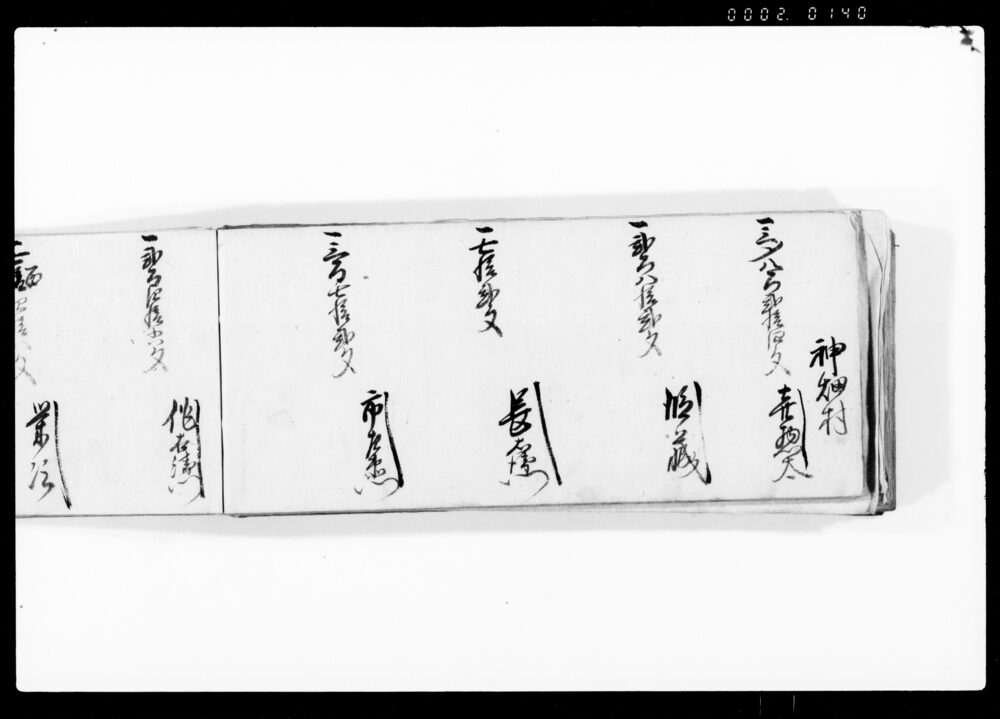 0002. 0140
神畑村
一三〆八百弐拾四文
喜惣太
一弐百八拾弐文
勝蔵
一七拾弐文
長右衛門
一三百七拾弐文
市左衛門
一弐百四拾六文
作右衛門